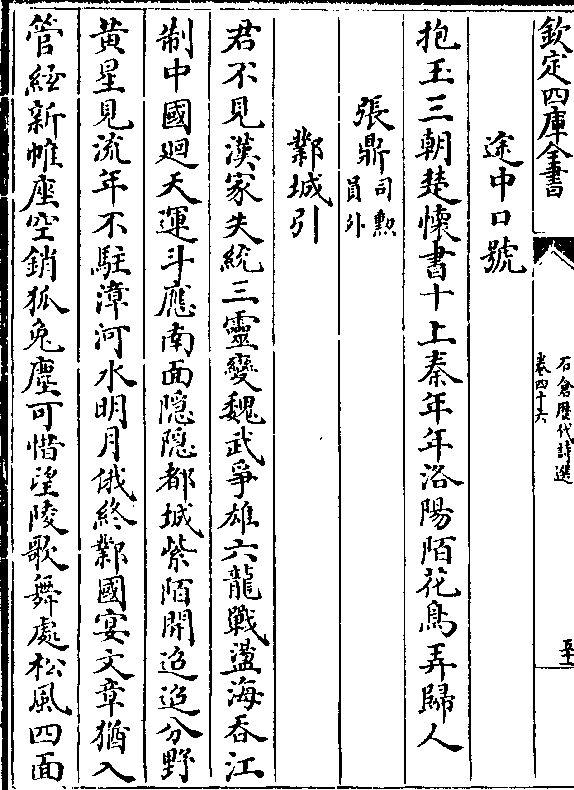 欽定四庫全書
石倉歷代詩選
卷四十六
途中口號
抱玉三朝楚懷書十上秦年年洛陽陌花鳥弄歸人
張鼎司勲
員外
鄴城引
君不見漢家失統三靈變魏武爭雄六龍戰盪海吞江
制中國廻天運斗應南面隱隱都城紫陌開迢迢分野
黃星見流年不駐漳河水明月俄終鄴國宴文章猶入
管絃新帷座空銷狐兔塵可惜望陵歌舞處松風四面